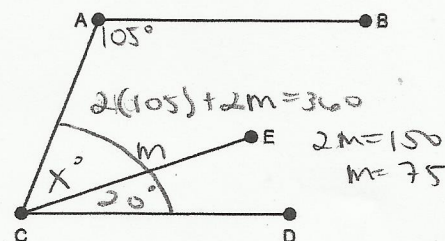 A B
105°
2(105) + 2m = 360
E 2m = 150
m m = 75
x°
20°
C D